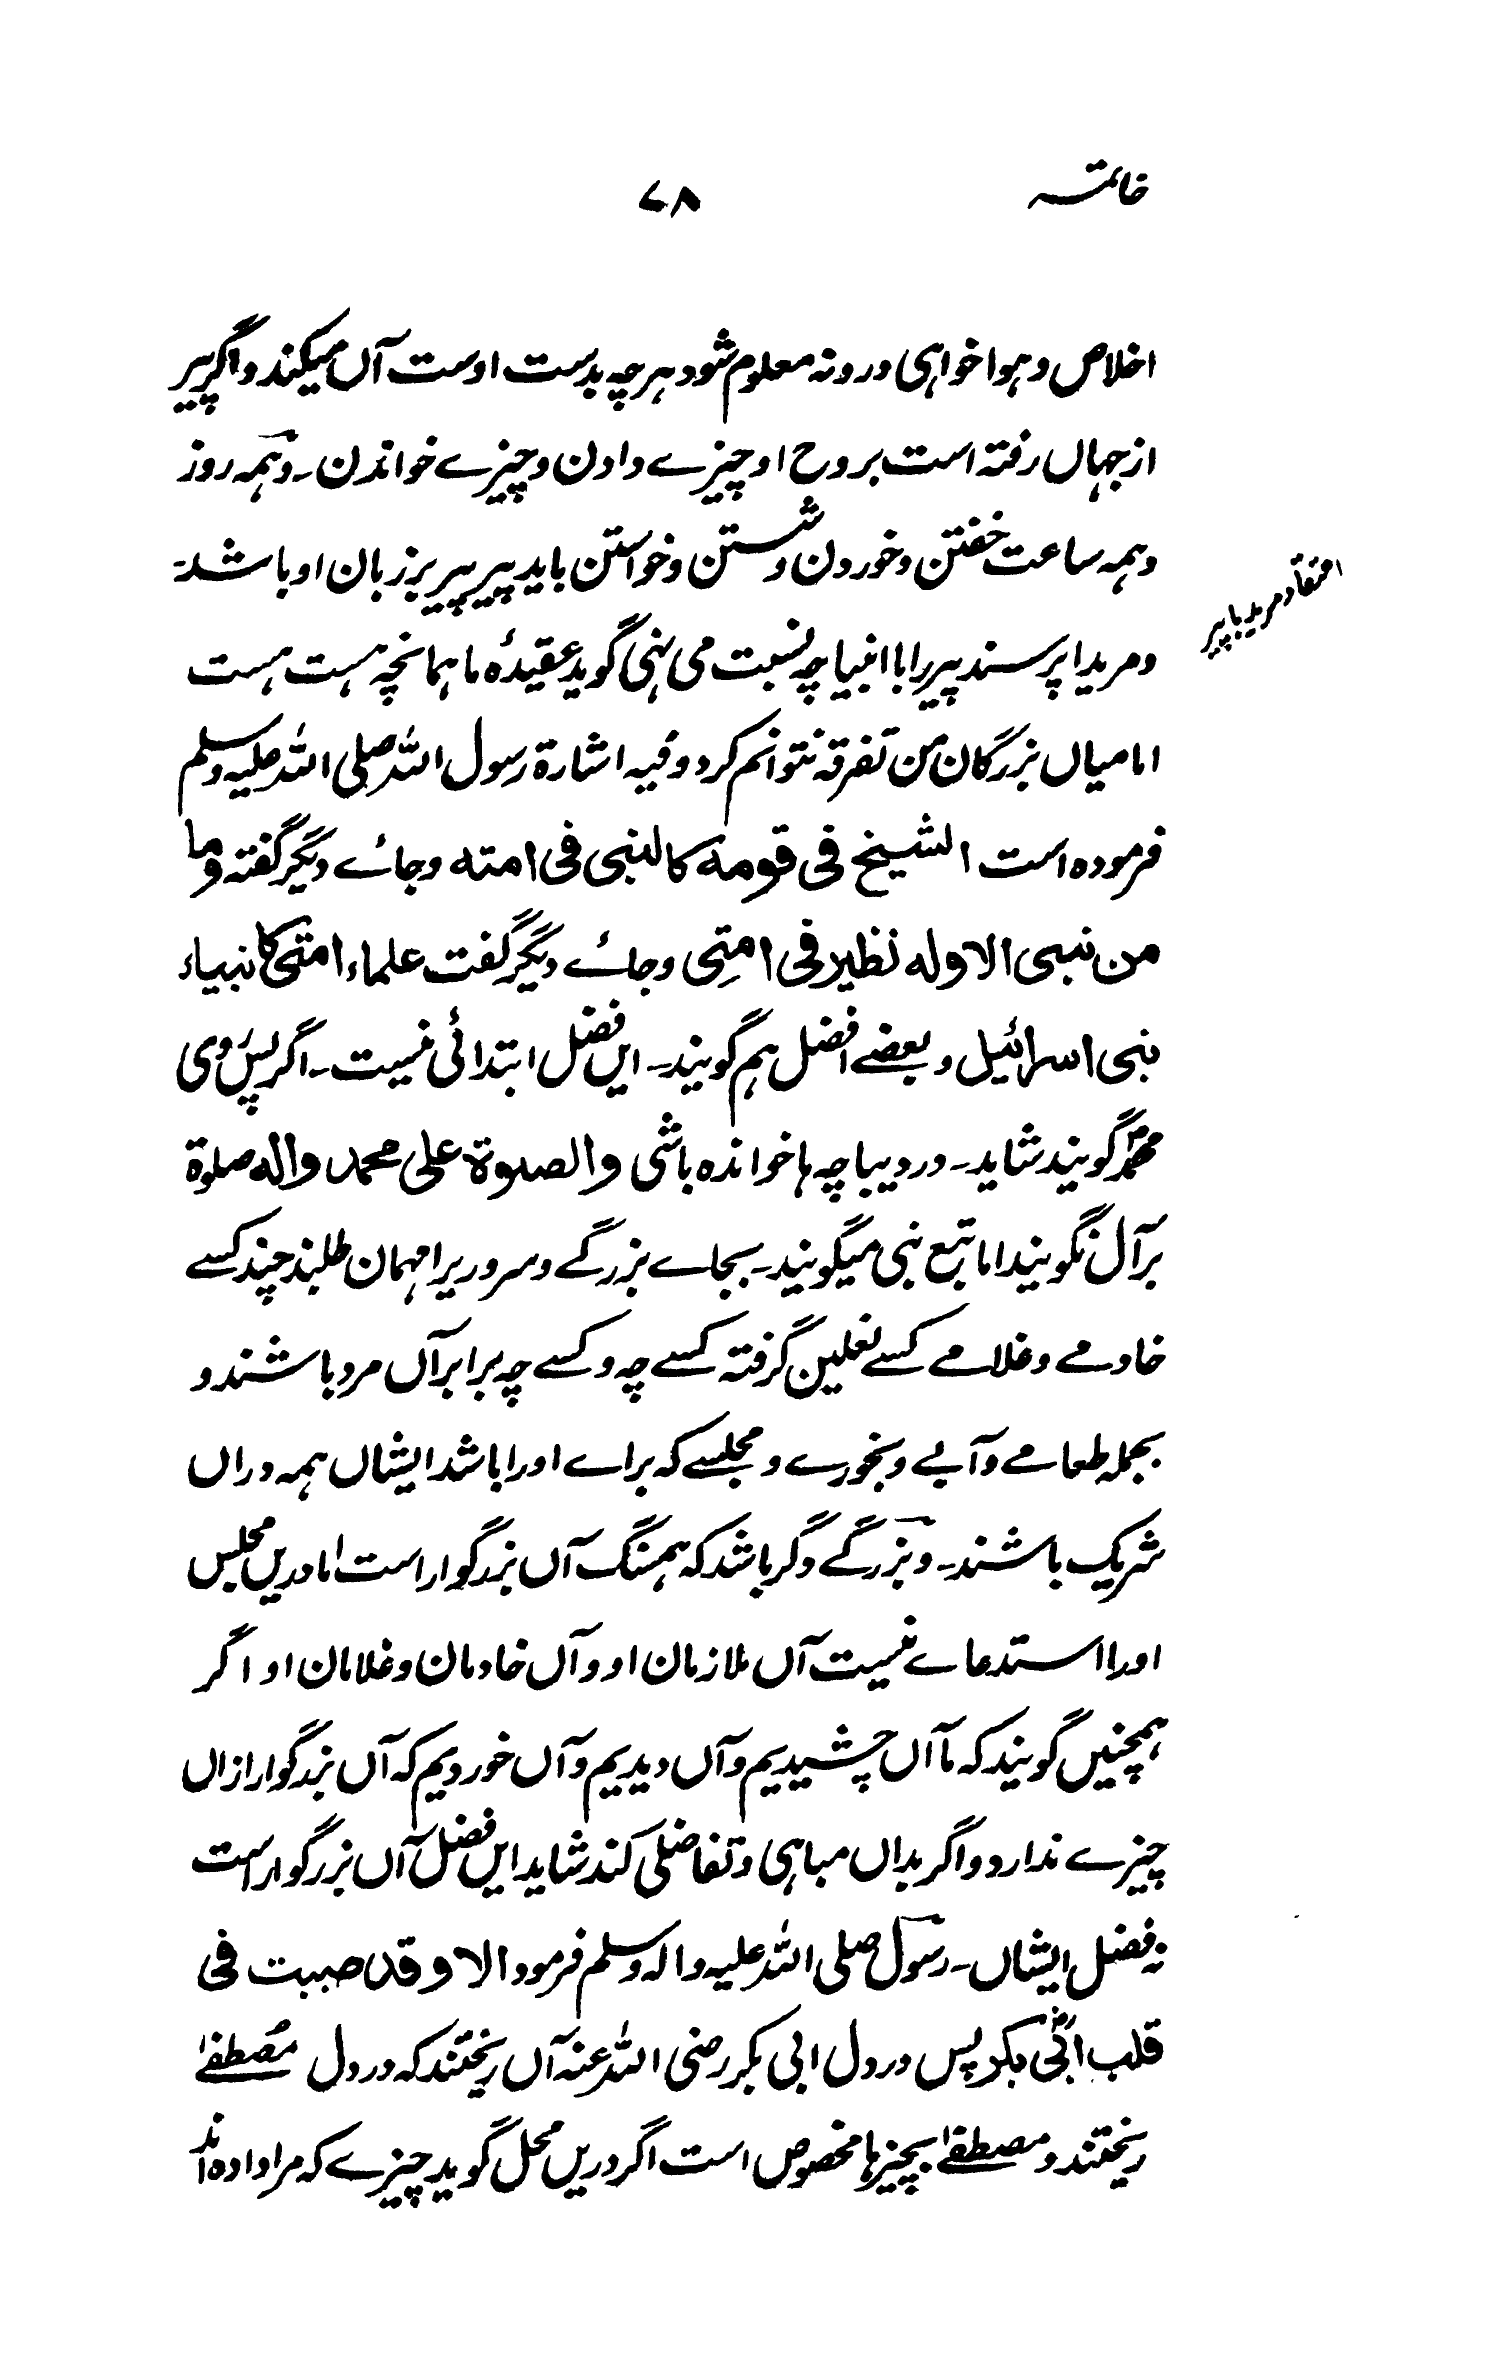 خاتمہ ۷۸
اخلاص و ہوا خواہی درونہ معلوم شود ہرچہ بدست اوست آں میکند واگر پیر
از جہاں رفتہ است بروح او چیزے دادن و چیزے خواندن ـ وہمہ روز
وہمہ ساعت خفتن وخوردن وشستن وخواستن باید پیر پیر بر زبان او باشد
اعتقاد مرید با پیر
ومرید را پرسند پیر را با انبیا چہ نسبت می نہی گوید عقیدۂ ما ہمانچہ ہست ہست
اما میاں بزرگان من تفرقہ نتوانم کرد وفیہ اشارۃ رسول اللہ صلی اللہ علیہ وسلم
فرمودہ است الشیخ فی قومہ کالنبی فی امتہ وجائے دیگر گفتہ وما
من نبی الا ولہ نظیر فی امتِی وجائے دیگر گفت علماء امتی کانبیاء
بنی اسرائیل وبعضے افضل ہم گویند ـ ایں فضل ابتدائی نیست ـ اگر پس روی
محمدؐ گویند شاید ـ در دیباچہ ہا خواندہ باشی والصلوۃ علی محمد والہ صلوۃ
بر آل نگویند اما بتبع نبی میگویند ـ بجاے بزرگے وسروریرا مہمان طلبند چند کسے
خادمے وغلامے کسے نعلین گرفتہ کسے چہ وکسے چہ برابر آں مرد باشند و
بجملہ طعامے وآبے وبخورے ومجلسے کہ براے او را باشد ایشاں ہمہ دراں
شریک باشند ـ وبزرگے دگر باشد کہ ہمسنگ آں بزرگوار است اما دریں مجلس
او را استدعاے نیست آں ملازمان او وآں خادمان وغلامان او اگر
ہمچنیں گویند کہ ما آں چشیدیم وآں دیدیم وآں خوردیم کہ آں بزرگوار ازاں
چیزے ندارد واگر بداں مباہی وتفاضلی کند شاید ایں فضل آں بزرگوار است
نہ فضل ایشاں ـ رسول صلی اللہ علیہ والہ وسلم فرمود الا وقد صببت فی
قلب ابی بکر پس در دل ابی بکر رضی اللہ عنہ آں ریختند کہ در دل مصطفےٰ
ریختند ومصطفےٰ بچیزہا مخصوص است اگر دریں محل گوید چیزے کہ مرا دادہ اند